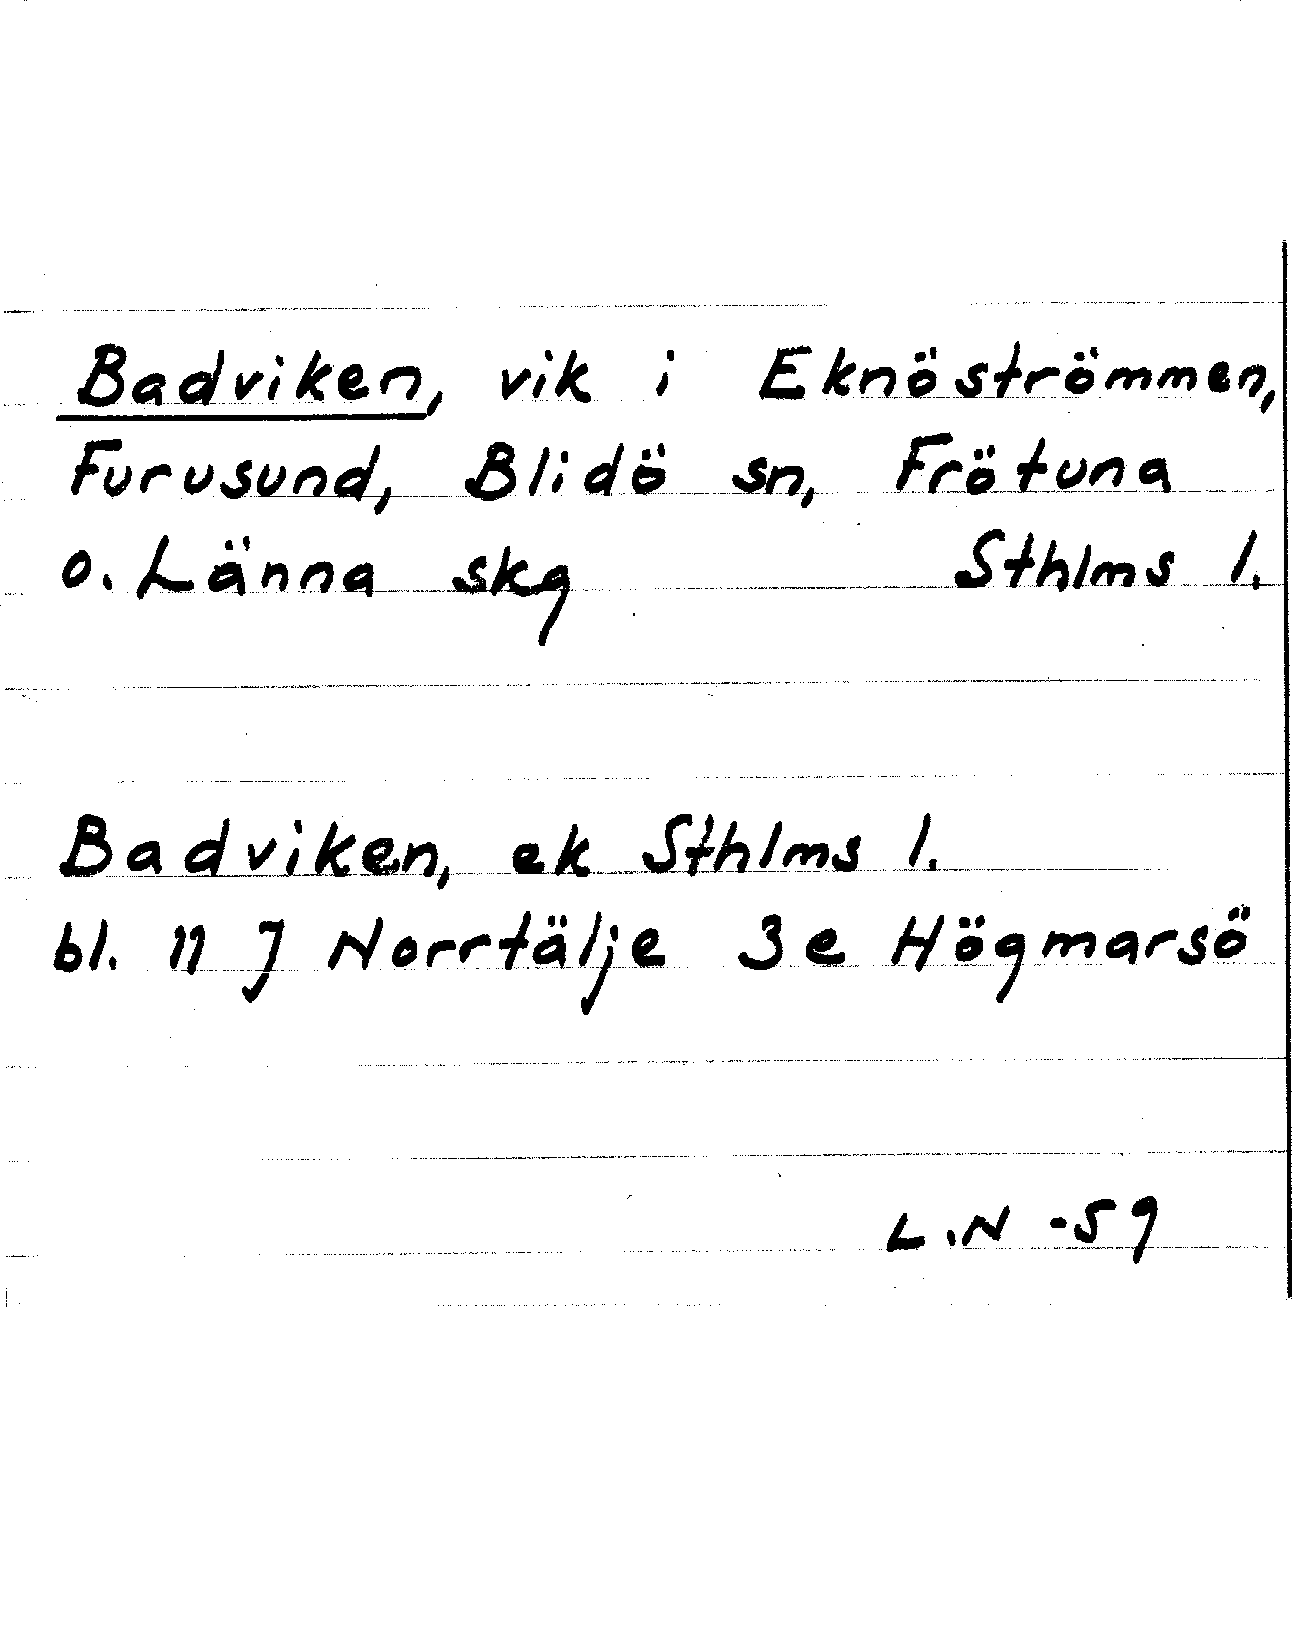 Badviken, vik i Eknöströmmen,
Furusund, Blidö sn, Frötuna
o. Länna skg Sthlms l.
Badviken, ek Sthlms l.
bl. 11 J Norrtälje 3e Högmarsö
L.N -59